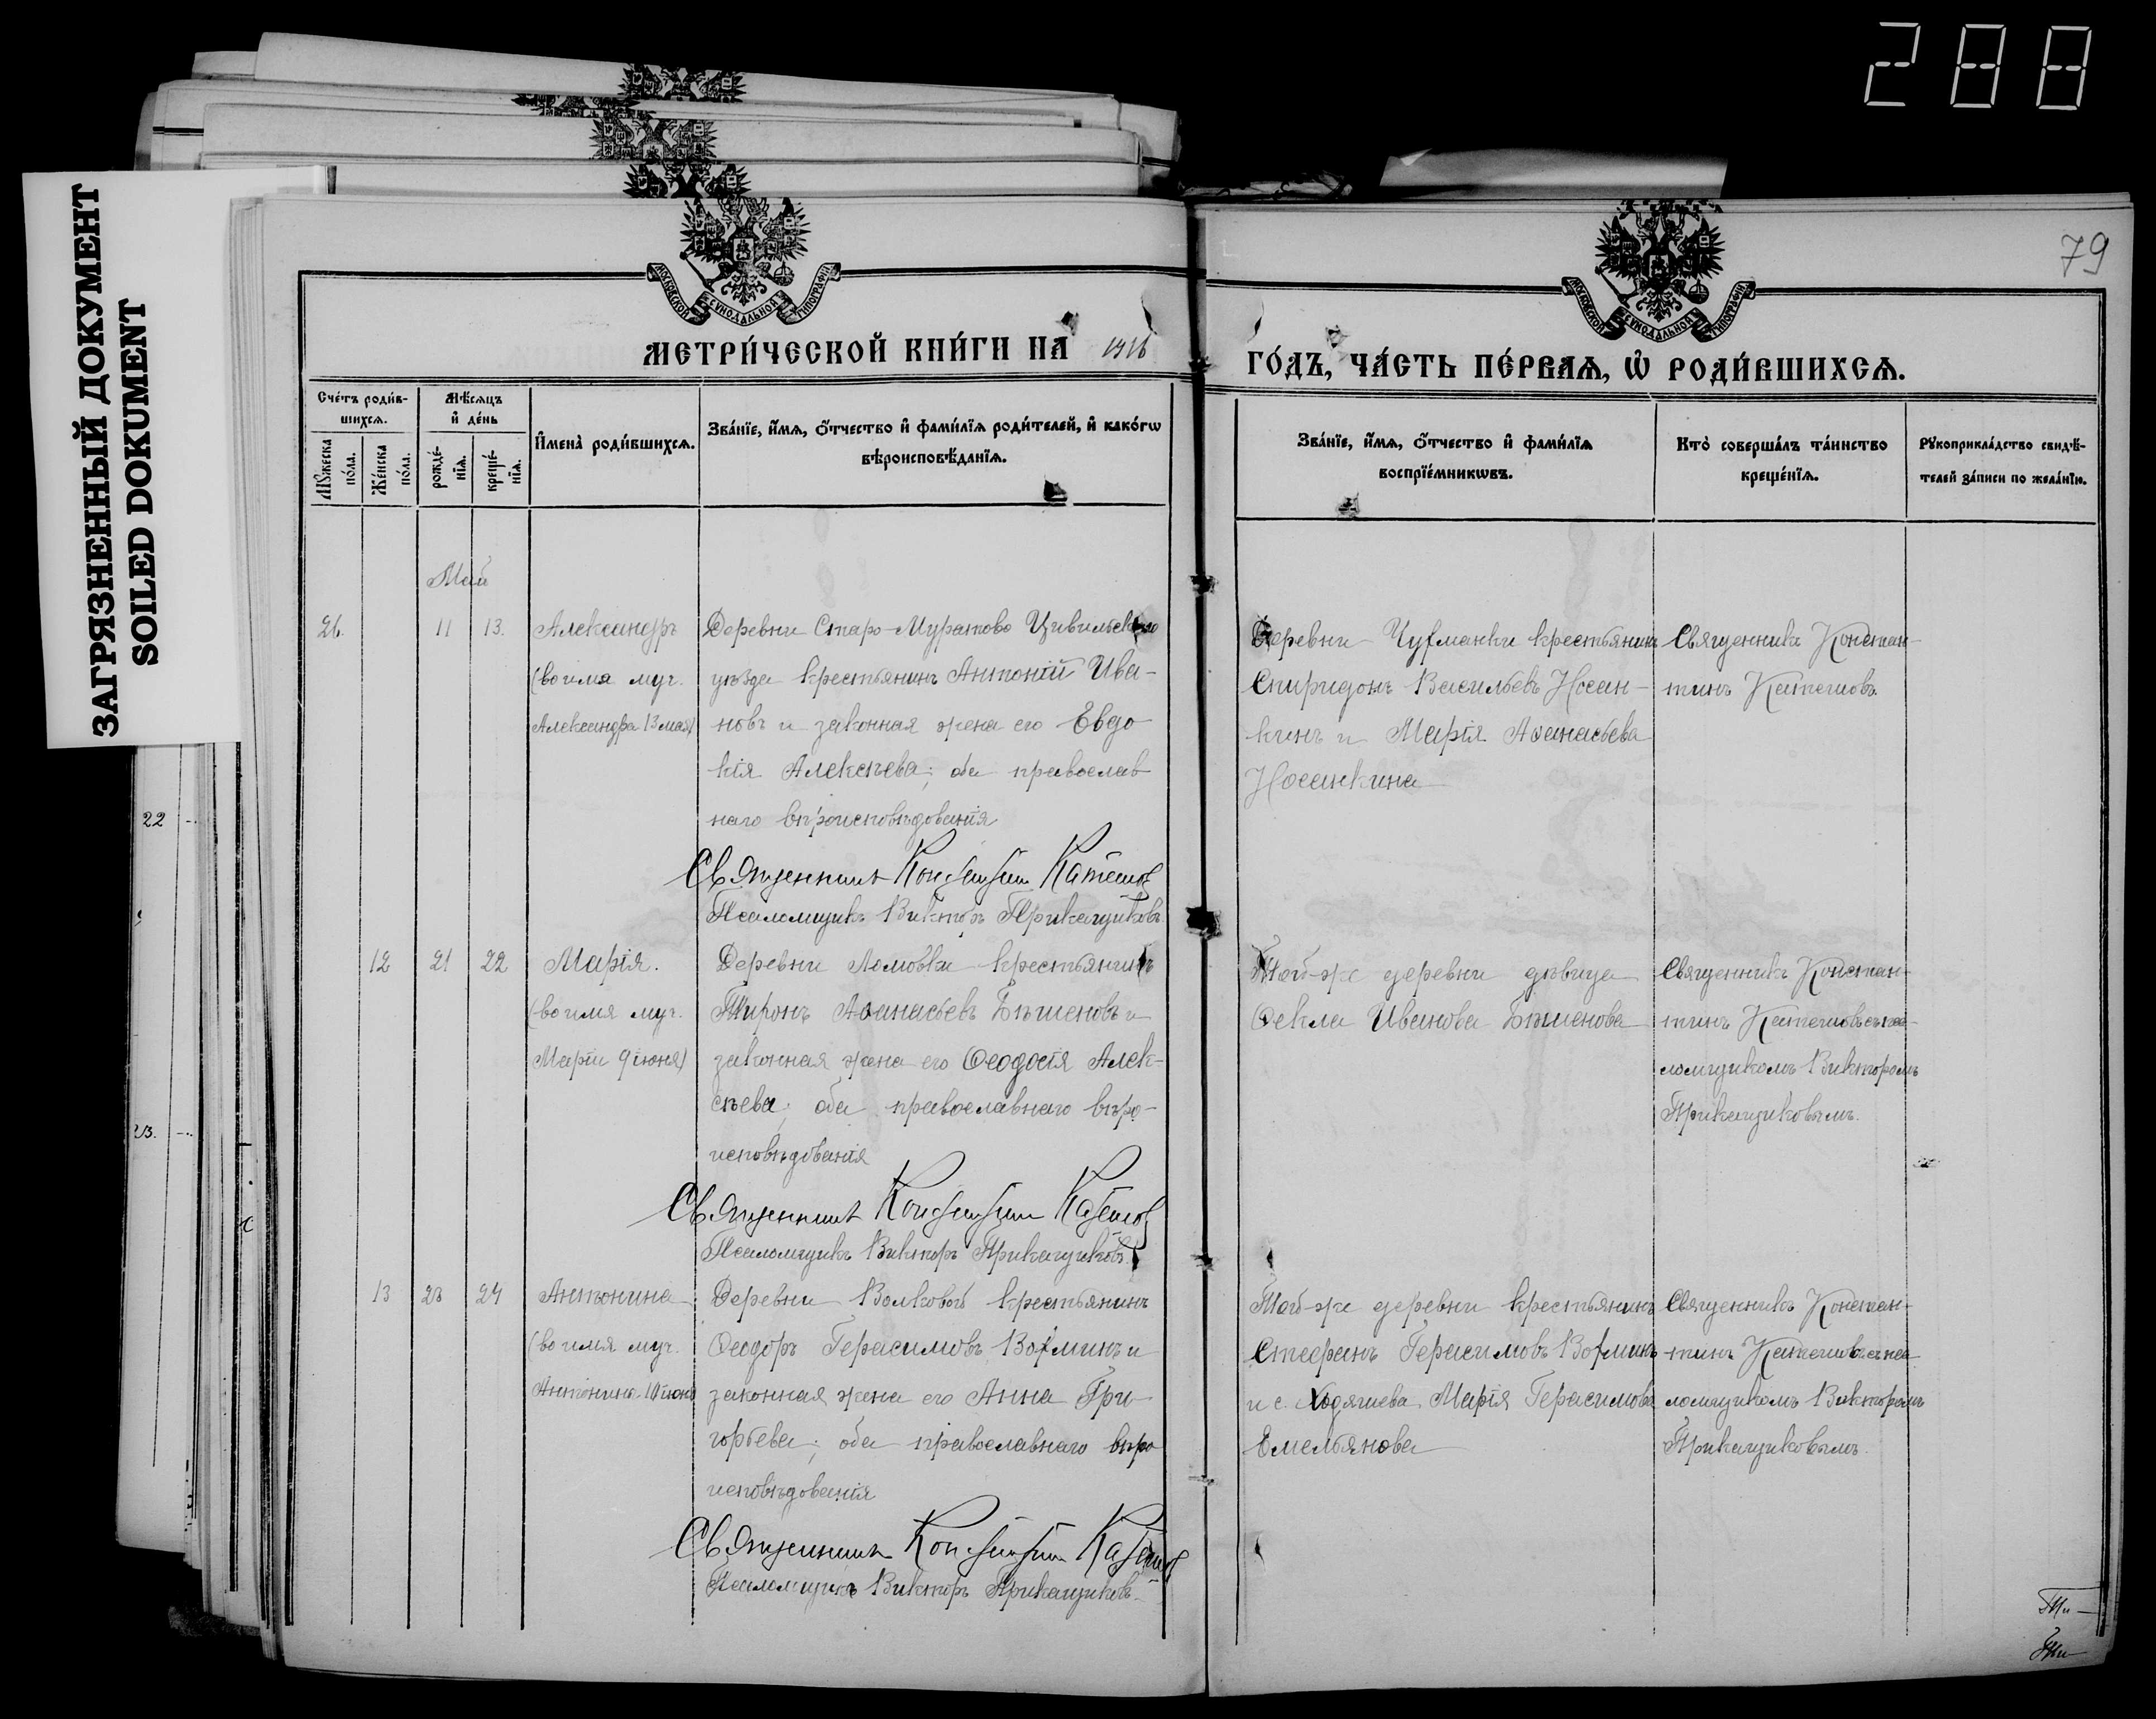 288
ЗАГРЯЗНЕННЫЙ ДОКУМЕНТ
SOILED DOKUMENT
79
МОСКОВСКОЙ СѴНОДАЛЬНОЙ ТИПОГРАФІИ
МОСКОВСКОЙ СѴНОДАЛЬНОЙ ТИПОГРАФІИ
МЕТРИ́ЧЕСКОЙ КНИ́ГИ НА 1916
ГО́ДЪ, ЧА́СТЬ ПЕ́РВАѦ, Ѡ҆ РОДИ́ВШИХСѦ.
Сче́тъ роди́в-
шихсѧ.
Мѣ́сѧцъ
и҆ де́нь
Мꙋ́жеска по́ла.
Же́нска по́ла.
рожде́-
нїѧ.
креще́-
нїѧ.
И҆мена̀ роди́вшихсѧ.
Зва́нїе, и҆́мѧ, ѻ҆́тчество и҆ фами́лїѧ роди́телей, и҆ како́гѡ
вѣроисповѣ́данїѧ.
Зва́нїе, и҆́мѧ, ѻ҆́тчество и҆ фами́лїѧ
воспрїе́мникѡвъ.
Кто̀ соверша́лъ та́инство
креще́нїѧ.
Рꙋкоприкла́дство свидѣ́-
телей за́писи по жела́нїю.
22
23.
Май
26.
11
13.
Александръ
(во имя муч.
Александра 13 мая)
Деревни Старо-Муратово Цивильскаго
уѣзда крестьянинъ Антоній Ива-
новъ и законная жена его Евдо
кія Алексѣева; оба православ
наго вѣроисповѣдованія
Священникъ Константин Катешов
Псаломщикъ Викторъ Прикащиковъ
Деревни крестьянинъ
Спиридонъ Васильевъ Носан-
кинъ и Марія Аѳанасьева
Носанкина
Священникъ Констан-
тинъ Катешовъ
12
21
22
Марія.
(во имя муч.
Маріи 9 іюня)
Деревни Ломовки крестьянинъ
Аѳанасьевъ Бѣшеновъ и
законная жена его Ѳеодосія Алек-
сѣева; оба православнаго вѣро-
исповѣдованія
Священникъ Константин Катешов
Псаломщикъ Викторъ Прикащиковъ
Той-же деревни дѣвица
Ѳекла Иванова Бѣшенова
Священникъ Констан-
тинъ Катешовъ съ пса-
ломщикомъ Викторомъ
Прикащиковымъ.
13
23
24
Антонина
(во имя муч.
Антонины 10 іюня
Деревни Волковой крестьянинъ
Ѳеодоръ Герасимовъ и
законная жена его Анна Гри-
горьева; оба православнаго вѣро
исповѣдованія
Священникъ Константин Катешов
Псаломщикъ Викторъ Прикащиковъ
Той-же деревни крестьянинъ
Стефанъ Герасимовъ
и с. Ходяшева Марія Герасимова
Емельянова
Священникъ Констан-
тинъ Катешовъ съ пса
ломщикомъ Викторомъ
Прикащиковымъ.